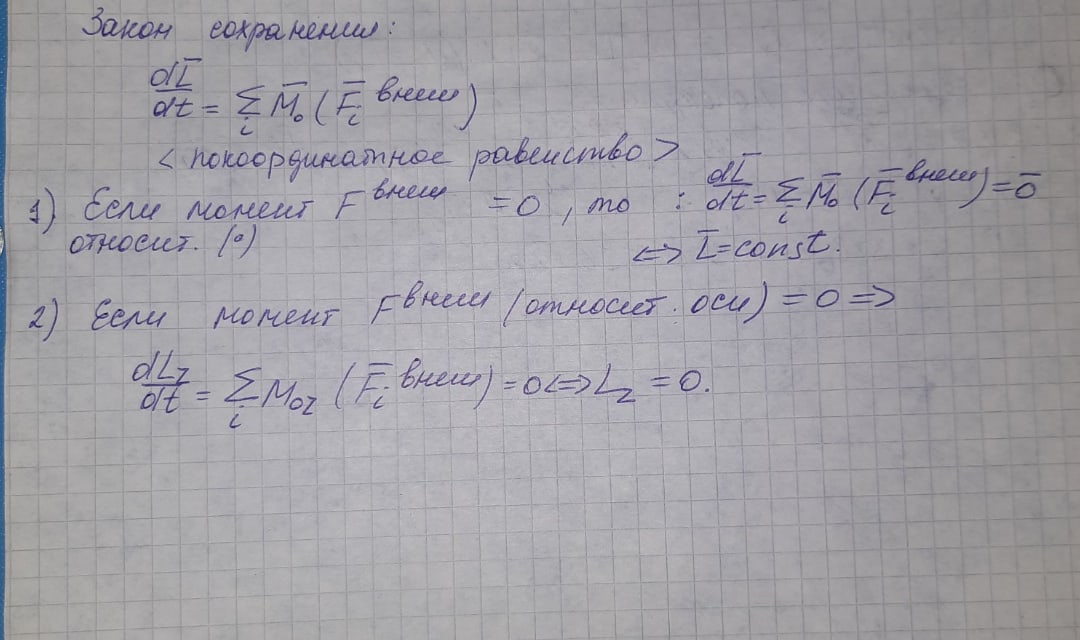 Закон сохранения:
dL̅/dt = Σᵢ M̅₀ (F̅ᵢ внеш)
< покоординатное равенство >
1) Если момент F внеш = 0, то : dL̅/dt = Σᵢ M̅₀ (F̅ᵢ внеш) = 0̅
относит. (•) <=> L̅ = const.
2) Если момент F внеш (относит. оси) = 0 =>
dL_z/dt = Σᵢ M₀z (F̅ᵢ внеш) = 0 <=> L_z = 0.